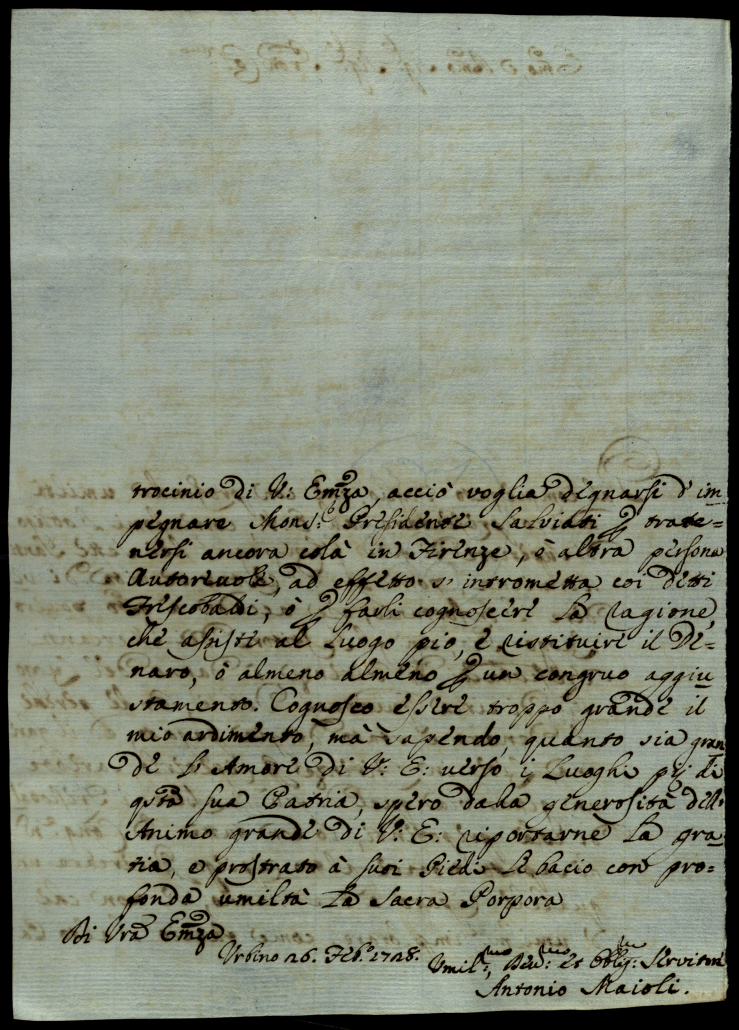 trocinio di V: Emza, acciò voglia degnarsi d'im
pegnare Mons:r Presidente Salviati p trate=
nersi ancora colà in Firenze, ò altra persona
Autorevole, ad effetto s'intrometta coi detti
Frescobaldi, ò p farli cognoscere la ragione,
che assiste al Luogo pio, e ristituire il De=
naro, ò almeno almeno p un congruo aggiu
stamento. Cognosco essere troppo grande il
mio ardimento, mà sapendo, quanto sia gran
de l'Amore di V: E: verso i Luoghi pij di
qsta sua Patria, spero dalla generosità dell'
Animo grande di V: E: riportarne la gra=
tia, e prostrato à suoi Piedi le bacio con pro=
fonda umiltà la Sacra Porpora
Di Vra Emza
Urbino 26. Feb.o 1728.
Umil:mo, Dev:mo et Obblig:mo Servitore
Antonio Maioli.